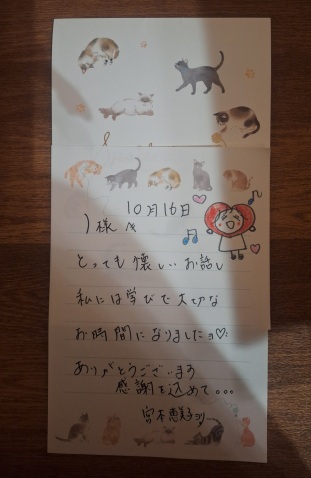 10月16日
様へ
とっても懐しいお話し
私には学びで大切な
お時間になりましたョ♡
ありがとうございます
感謝を込めて...
宮本恵美子ョリ